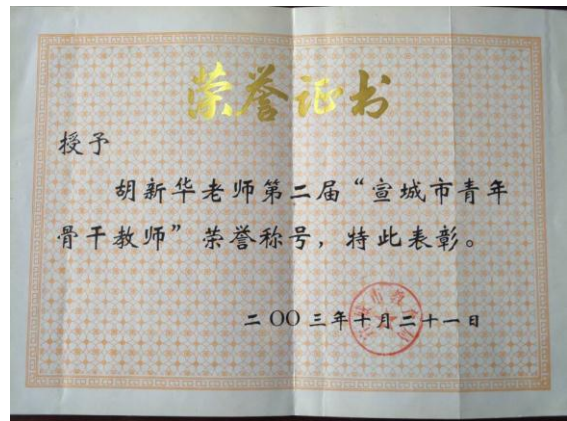 荣誉证书
授予
胡新华老师第二届“宣城市青年
骨干教师”荣誉称号，特此表彰。
二〇〇三年十月二十一日